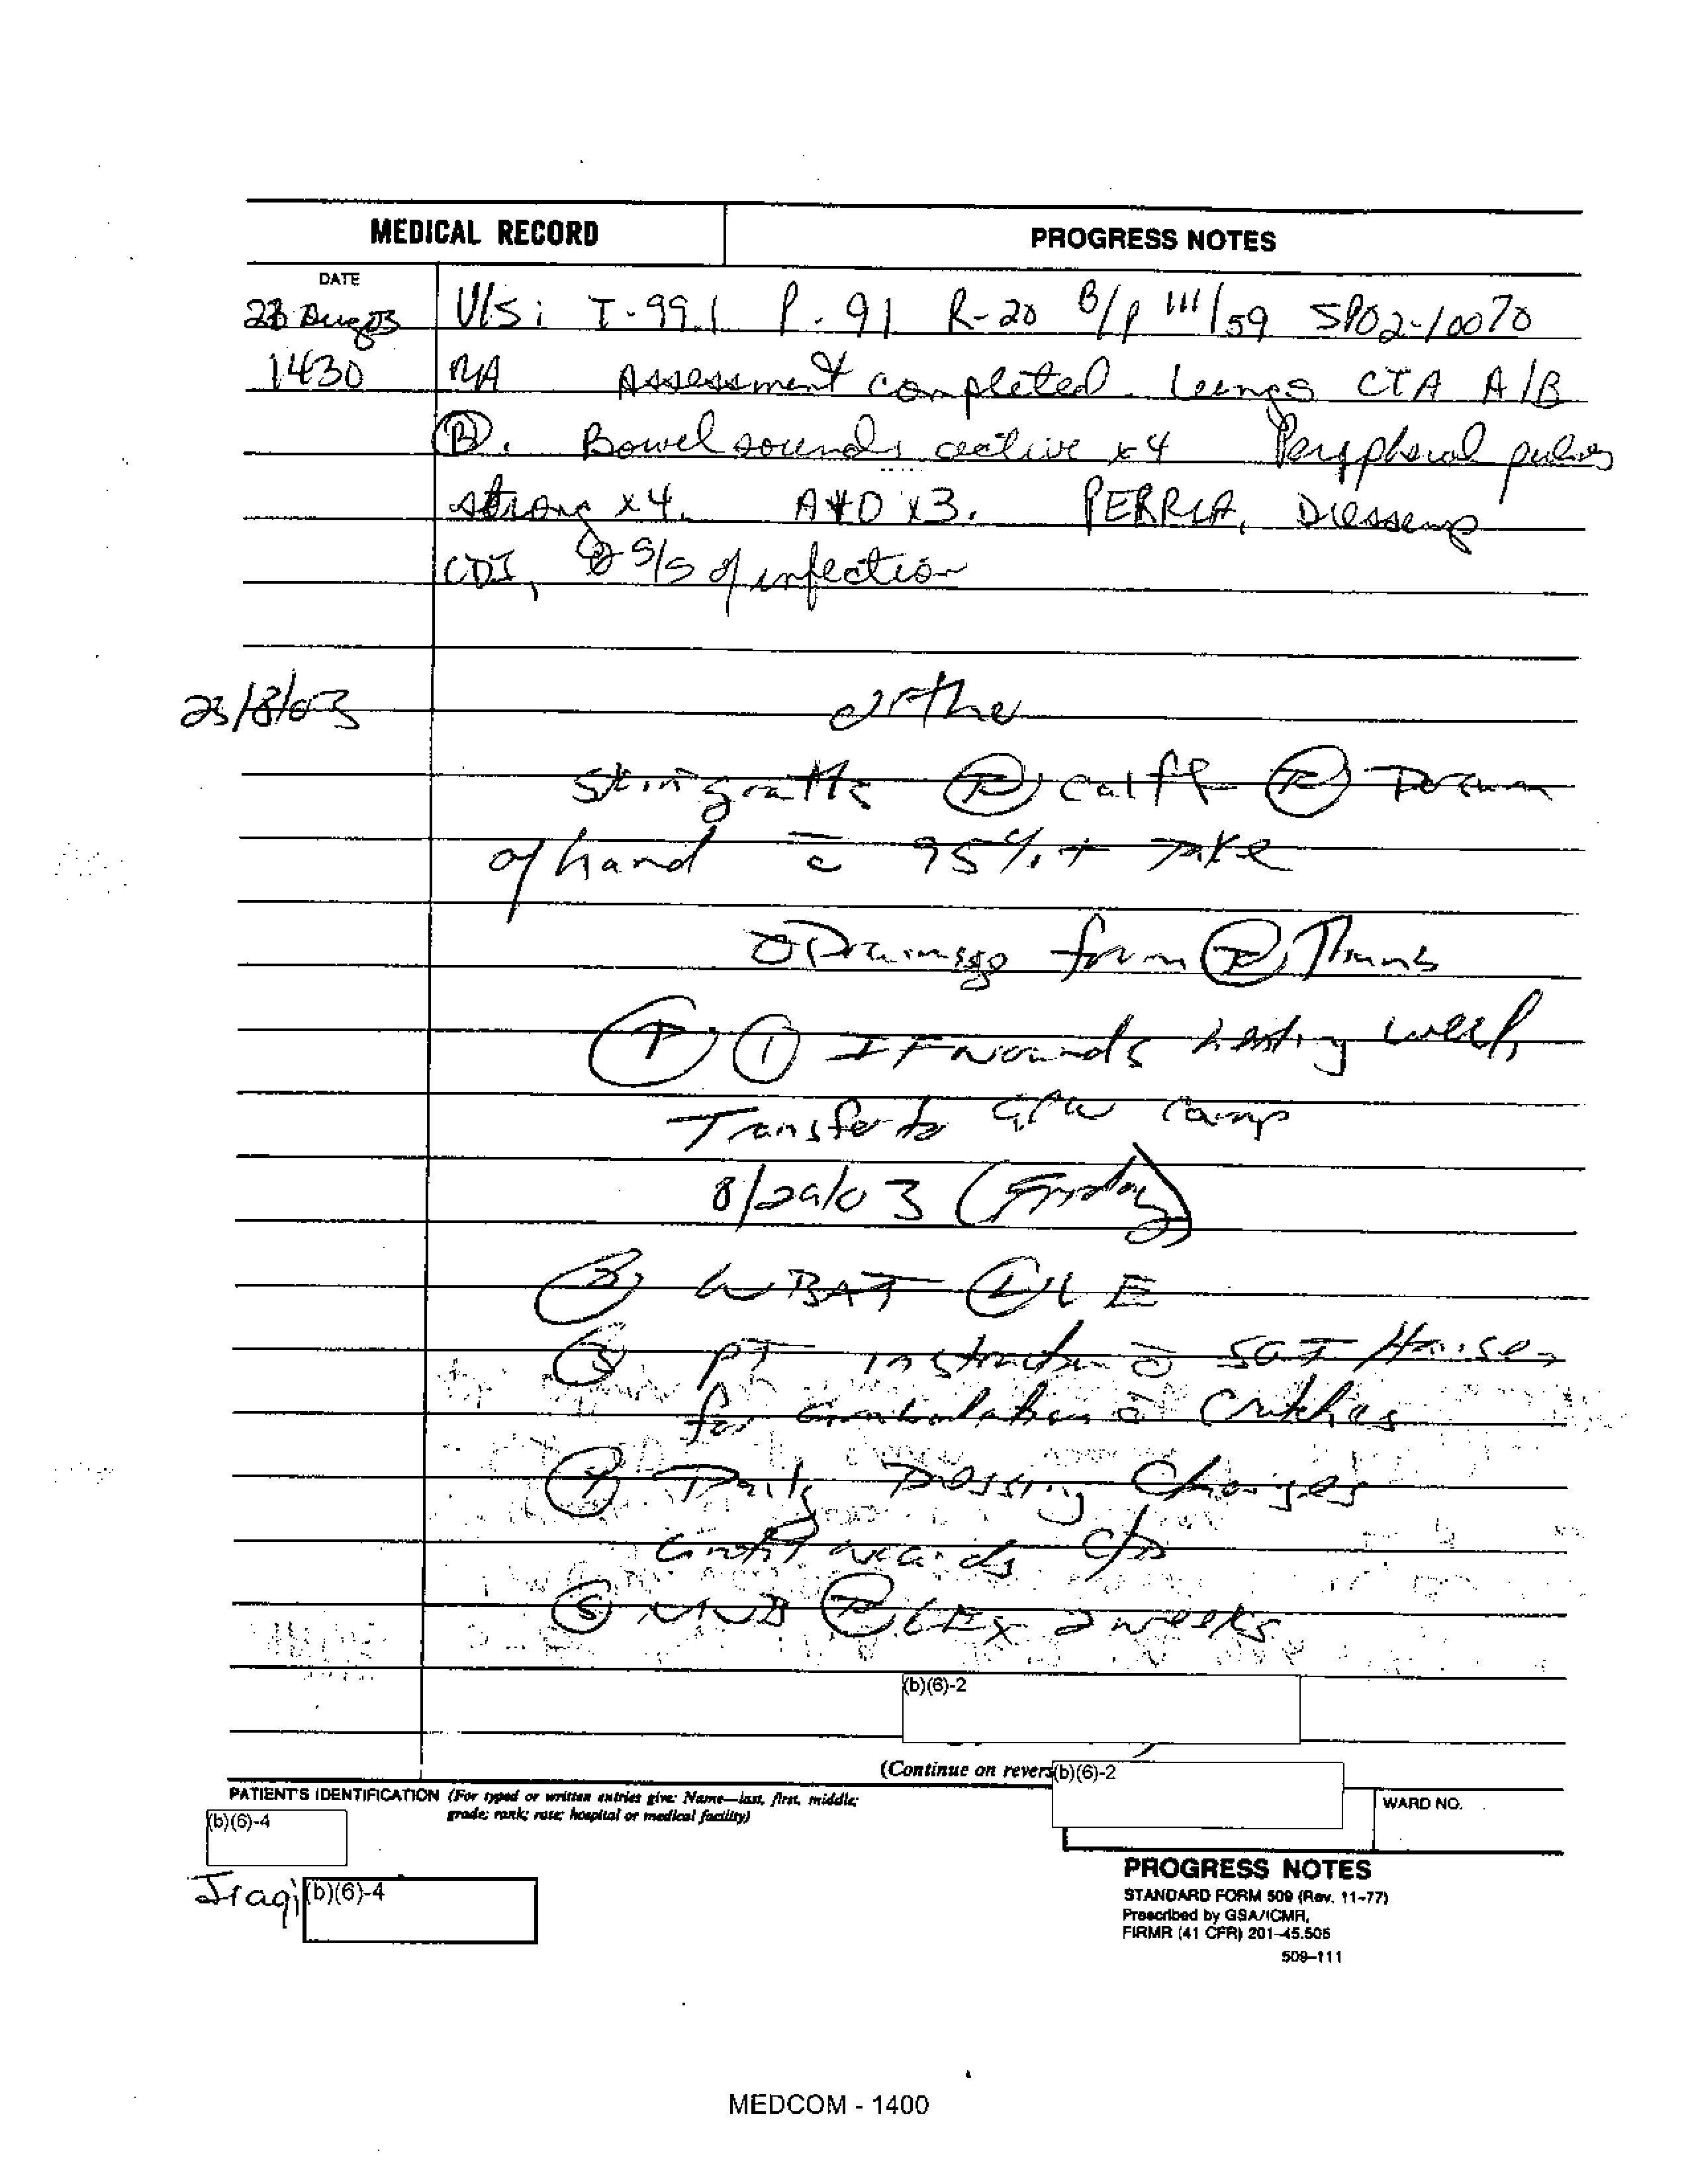 MEDICAL RECORD
PROGRESS NOTES
DATE
23 Aug 03
V/S: T-99.1 P-91 R-20 B/P 111/59 SPO2-100%
1430
RA Assessment completed. Lungs CTA A/B
Ⓑ. Bowel sounds active x4 Peripheral pulses
strong x4. A+O x3. PERRLA, Dressing
CDI, Ø S/S of infection
23/8/03
Ortho
Skin grafts Ⓡ calf & Ⓡ Dorsum
of hand c̄ 95%+ take
Ø Drainage from Ⓡ Thumb
Ⓟ ① If wounds healing well,
Transfer to EPW camp
8/29/03 (Friday)
② WBAT Ⓛ LE
③ PT instruction c̄
for ambulation c̄ Crutches
④ Daily Dressing Changes
wounds
⑤ Ⓡ LE x 2 weeks
(b)(6)-2
(Continue on revers
(b)(6)-2
PATIENT'S IDENTIFICATION (For typed or written entries give: Name—last, first, middle;
grade; rank; rate; hospital or medical facility)
WARD NO.
(b)(6)-4
Iraqi (b)(6)-4
PROGRESS NOTES
STANDARD FORM 509 (Rev. 11-77)
Prescribed by GSA/ICMR,
FIRMR (41 CFR) 201-45.505
509-111
MEDCOM - 1400